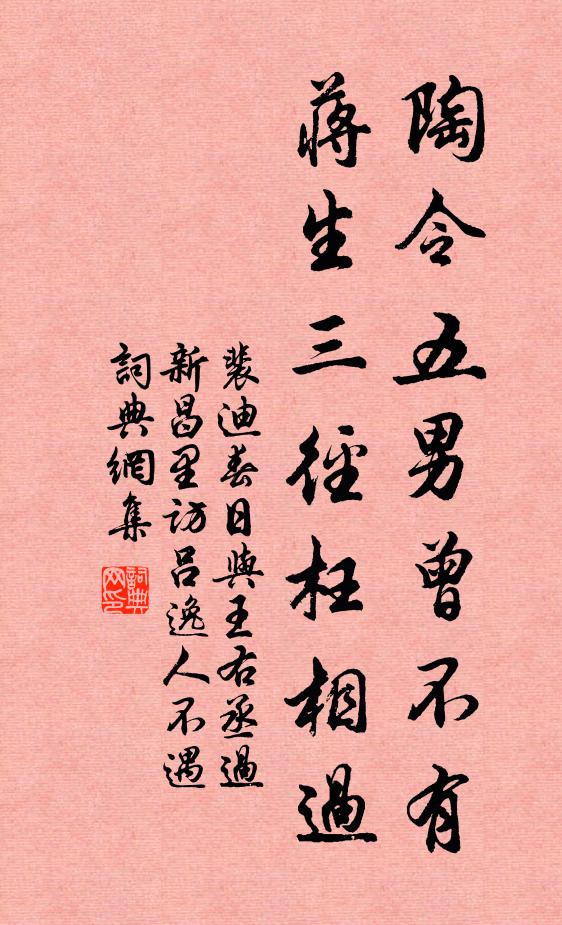 陶令五男曾不有
蔣生三徑枉相過
裴迪春日與王右丞過
新昌里訪呂逸人不遇
詞典網集
詞典
网印